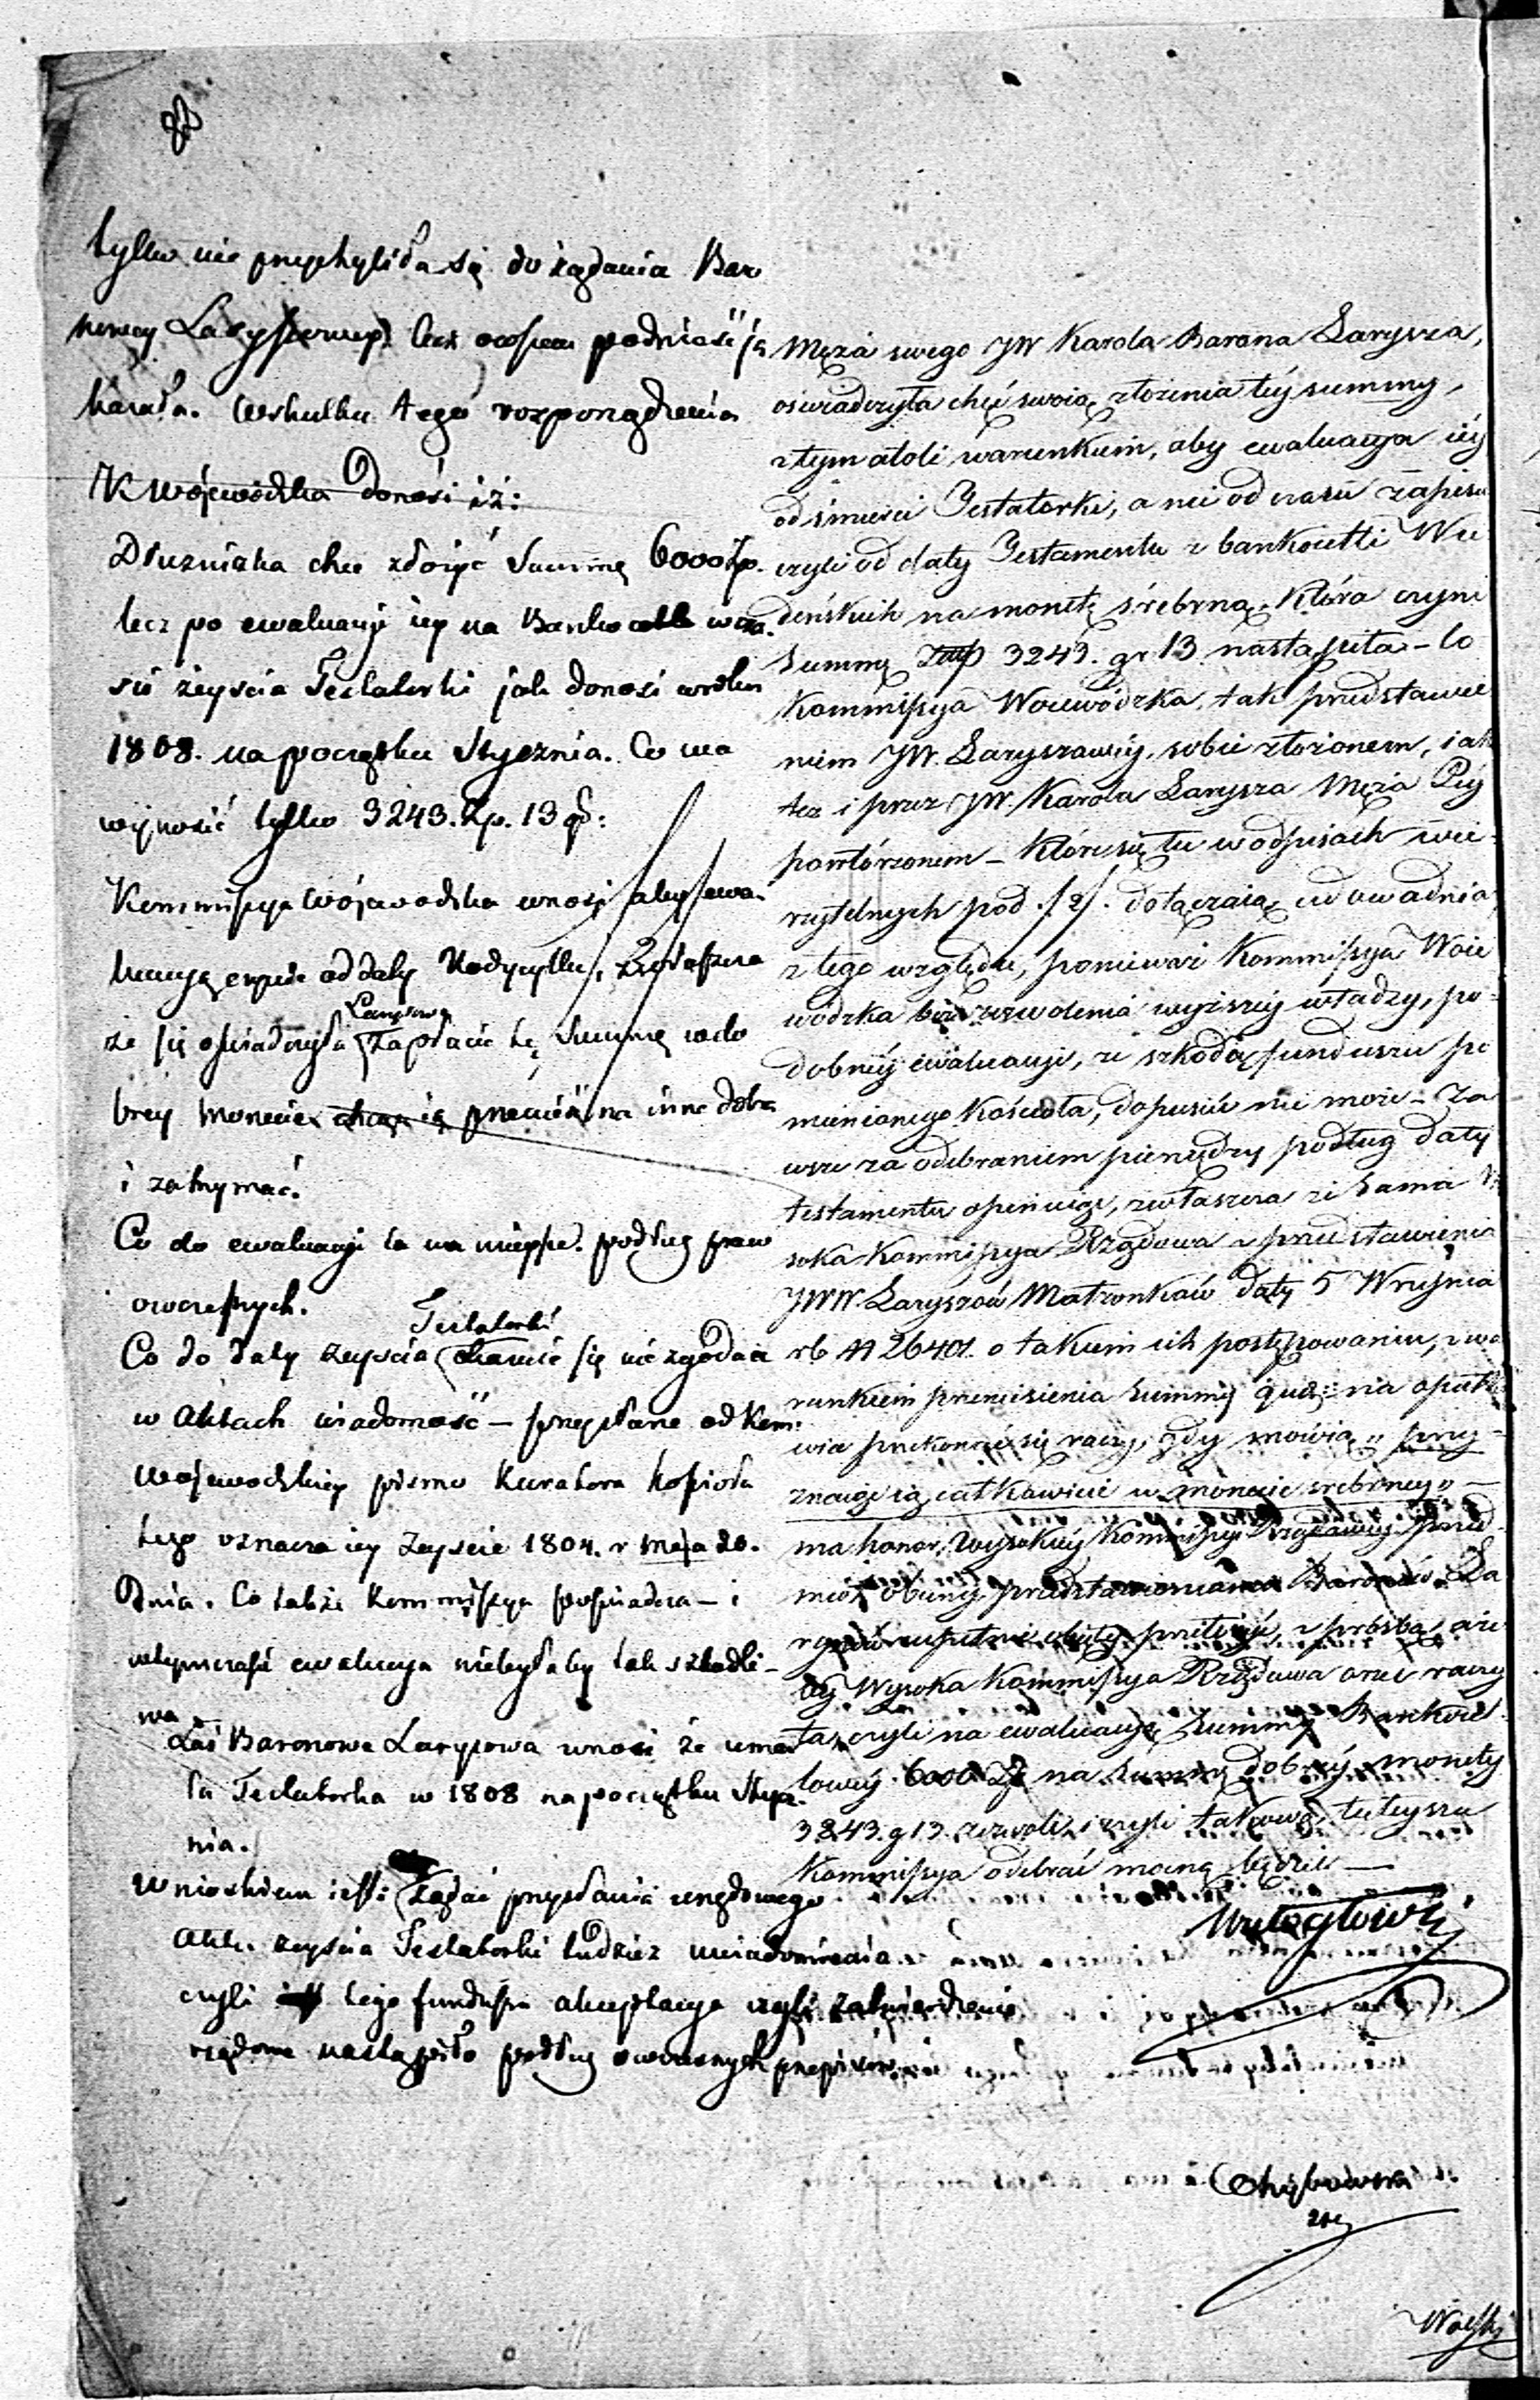 tylko nie przychyliła się do żądania Baro
nowey Laryszowey lecz owszem podnieść ją
kazała. Wskutku tego rozporządzenia
K Wojewódzka donosi iż:
Dłużniczka chce złożyć Summę 6000 Zp.
lecz po ewaluacyi iey na Bankocetle w cza
sie zeyścia Testatorki jak donosi w roku
1808. na początku Stycznia. Co ma
wynosić tylko 3243. Zp. 13 gr:
Kommissya Wojewodzka wnosi aby ewa
luacyą od daty Kodycyllu, zwłaszcza
że się oświadczyła Laryszowa zapłacić tę Summę w do
brey monecie chcąc ią przenieść na inne dobra
i zatrzymać.
Co do ewaluacyi ta ma mieysce podług praw
owczesnych.
Co do daty zeyścia Testatorki się nie zgadza
w Aktach wiadomość – przysłane od Kom:
Wojewodzkiey pismo Kuratora Kościoła
tego oznacza iey zeyście 1804. r maja 20.
Dnia. Co także Kommissya poświadcza – i
w tym czasie ewaluacya niebyłaby tak szkodli-
wa
Zaś Baronowa Laryszowa wnosi że umar
ła Testatorka w 1808 na początku Stycz-
nia.
Wnioskiem żądać przysłania urzędowego
Aktu zeyścia Testatorki tudzież uwiadomienia
czyli tego funduszu akceptacya czyli zatwierdzenie
rządowe nastąpiło podług owczesnych przepisów
Męża swego JW Karola Barona Larysza,
oswiadczyła chęć swoią złożenia téy summy,
z tym atoli warunkiem, aby ewaluacya iéy
od śmierci Testatorki, a nie od czasu zapisu
czyli od daty Testamentu z bankocetli Wie
deńskich na monetę śrebrną, która czyni
Summę Złp 3243. gr 13 nastąpiła – to
Kommissya Woiewódzka, tak przedstawie
niem JW. Laryszowéy, sobie złożonem, iak
tez i przez JW. Karola Larysza Męża Iéy
powtórzonem – które się tu w odpisach wie-
rzytelnych pod ./2/. dołączaią udowadnia
z tego względu, ponieważ Kommissya Woie
wódzka bez zezwolenia wyższéy władzy, po-
dobnéy ewaluacyi, ze szkodą funduszu po
mienionego Kościoła, dopuścić nie może – Za
wsze za odebraniem pieniędzy podług daty
testamentu opiniuie, zwłaszcza że sama Wy
soka Kommissya Rządowa z przedstawienia
JWW. Laryszów Małżonków daty 5 Września
rb N 26401. o takiem ich postępowaniu, z wa
runkiem przeniesienia Summy
przekonać się raczy, gdy mówią „ przy-
znaie ią całkowicie w monecie srebrney „ –
ma honor Wysokiéy Kommissyi Rządowey przed
Baronów La
z prosbą, aże
by Wysoka Kommissya Rządowa orzec raczy
ła, czyli na ewaluacyę Summy Bankoce
towéy 6000 Zł na Summę dobréy monety
3243. g 13. zezwoli, i czyli takową tuteysza
Kommissya odebrać mocną będzie –
Wielogłowski
Wolski